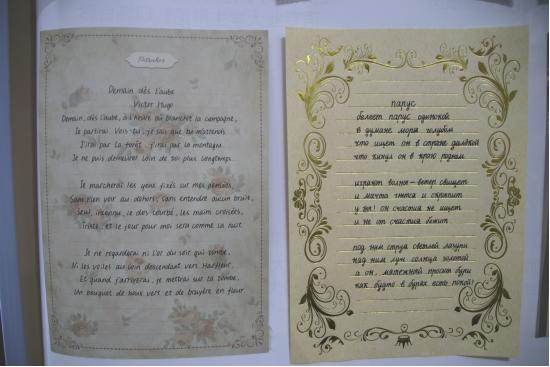 Demain, dès l'aube
Victor Hugo
Demain, dès l'aube, à l'heure où blanchit la campagne,
Je partirai. Vois-tu, je sais que tu m'attends.
J'irai par la forêt, j'irai par la montagne.
Je ne puis demeurer loin de toi plus longtemps.
Je marcherai les yeux fixés sur mes pensées,
Sans rien voir au dehors, sans entendre aucun bruit,
Seul, inconnu, le dos courbé, les mains croisées,
Triste, et le jour pour moi sera comme la nuit.
Je ne regarderai ni l'or du soir qui tombe,
Ni les voiles au loin descendant vers Harfleur,
Et quand j'arriverai, je mettrai sur ta tombe,
Un bouquet de houx vert et de bruyère en fleur.
парус
белеет парус одинокой
в тумане моря голубом
что ищет он в стране далёкой
что кинул он в краю родном
играют волны-ветер свищет
и мачта гнется и скрипит
увы! он счастия не ищет
и не от счастия бежит
под ним струя светлей лазури
над ним луч солнца золотой
а он, мятежный, просит бури
как будто в бурях есть покой!